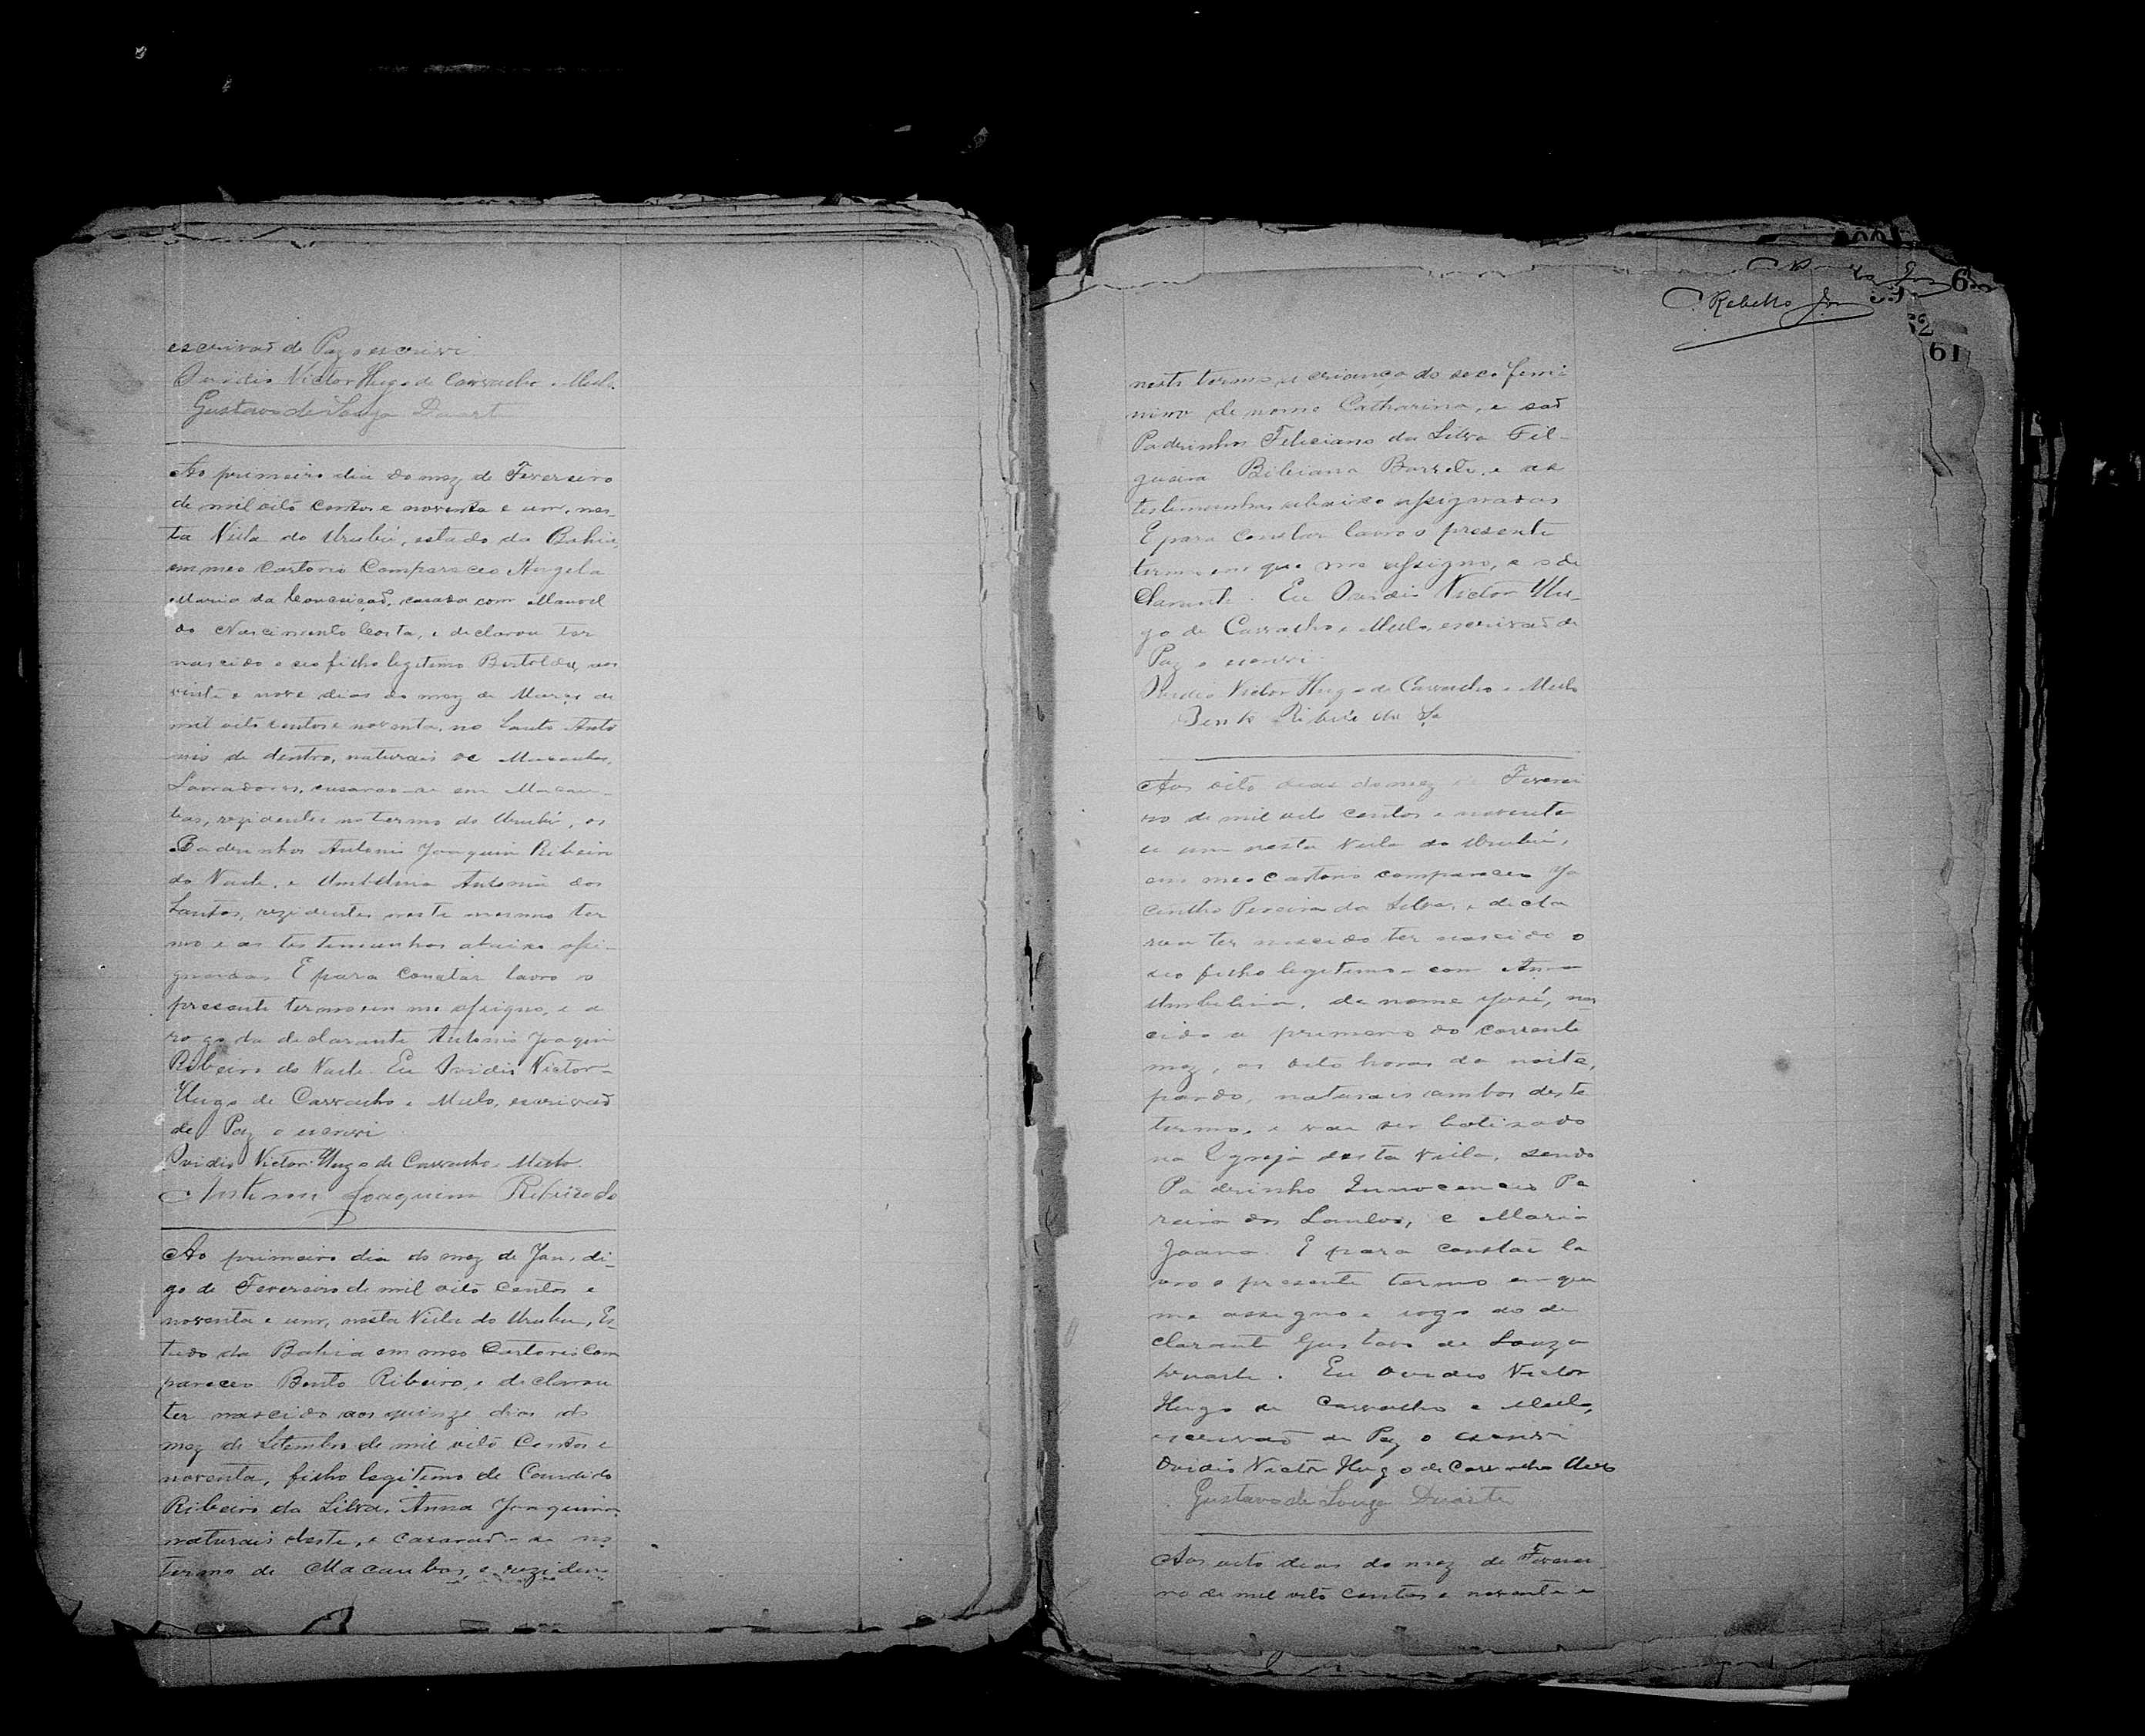 escrivaõ de Paz o escrevi
Ovidio Victor Hugo de Carvalho e Mello.
Gustavo de Souza Duart
Ao primeiro dia do mez de Fevereiro
de mil oito centos e noventa e um, nes-
ta Villa do Urubú, estado da Bahia,
em meo Cartorio Compareceo Angela
Maria da Conceiçaõ, casada com Manoel
do Nascimento Costa, e declarou ter
nascido o seo filho legitimo Bertoldo, aos
vinte e nove dias do mez de Março de
mil oito centos e noventa, no Santo Anto
nio de dentro, naturais de Macaubas,
Lavradores, casaraõ-se em Macau-
bas, rezidentes no termo do Urubú, os
Padrinhos Antonio Joaquim Ribeiro
do Valle, e Umbelina Antonia dos
Santos, rezidentes neste mesmo ter
mo e as testemunhas abaixo assi-
gnadas E para constar lavro o
presente termo em me assigno, e a
rogo da declarante Antonio Joaquim
Ribeiro do Valle. Eu Ovidio Victor-
Hugo de Carvalho e Mello, escrivaõ
de Paz o escrevi
Ovidio Victor Hugo de Carvalho e Mello.
Antonio Joaquim Ribeiro do
Ao primeiro dia do mez de Jan, di-
go de Fevereiro de mil oito centos e
noventa e um, nesta Villa do Urubu, Es-
tado da Bahia em meo Cartorio Com
pareceo Bento Ribeiro, e declarou
ter nascido aos quinze dias do
mez de Setembro de mil oito Centos e
noventa, filho legitimo de Candido
Ribeiro da Silva, Anna Joaquina,
naturais deste, e casaraõ-se no
termo de Macaubas, e reziden-
Rebello Jor
61
neste termo, a criança do sexo femi
nino de nome Catharina, e saõ
Padrinhos Feliciano da Silva Fil-
gueira Bibiana Barreto, e as
testemunhas abaixo assignadas
E para constar lavro o presente
termo em que me assigno, e o de
clarante. Eu Ovidio Victor Hu-
go de Carvalho e Mello, escrivaõ de
Paz o escrevi.
Ovidio Victor Hugo de Carvalho e Mello
Bento Ribeiro da Sa
Aos oito dias do mez de Feverei
ro de mil oito centos e noventa
e um nesta Villa do Urubú,
em meo cartorio compareceo Ja
cintho Pereira da Silva, e decla
rou ter nascido ter nascido o
seo filho legitimo com Anna
Umbelina, de nome José, nas
cido a primeiro do corrente
mez, as oito horas da noite,
pardo, naturais ambos deste
termo, e vae ser batisado
na Egreja desta Villa, sendo
Padrinho Innocencio Pe
reira dos Santos, e Maria
Joana. E para constar la
vro o presente termo em que
me assigno e rogo do de
clarante Gustavo de Souza
Duarte. Eu Ovidio Victor
Hugo de Carvalho e Mello,
escrivaõ de Paz o escrevi
Ovidio Victor Hugo de Carvalho Mello
Gustavo de Souza Duarte
Aos oito dias do mez de Feverei-
ro de mil oito centos e noventa e